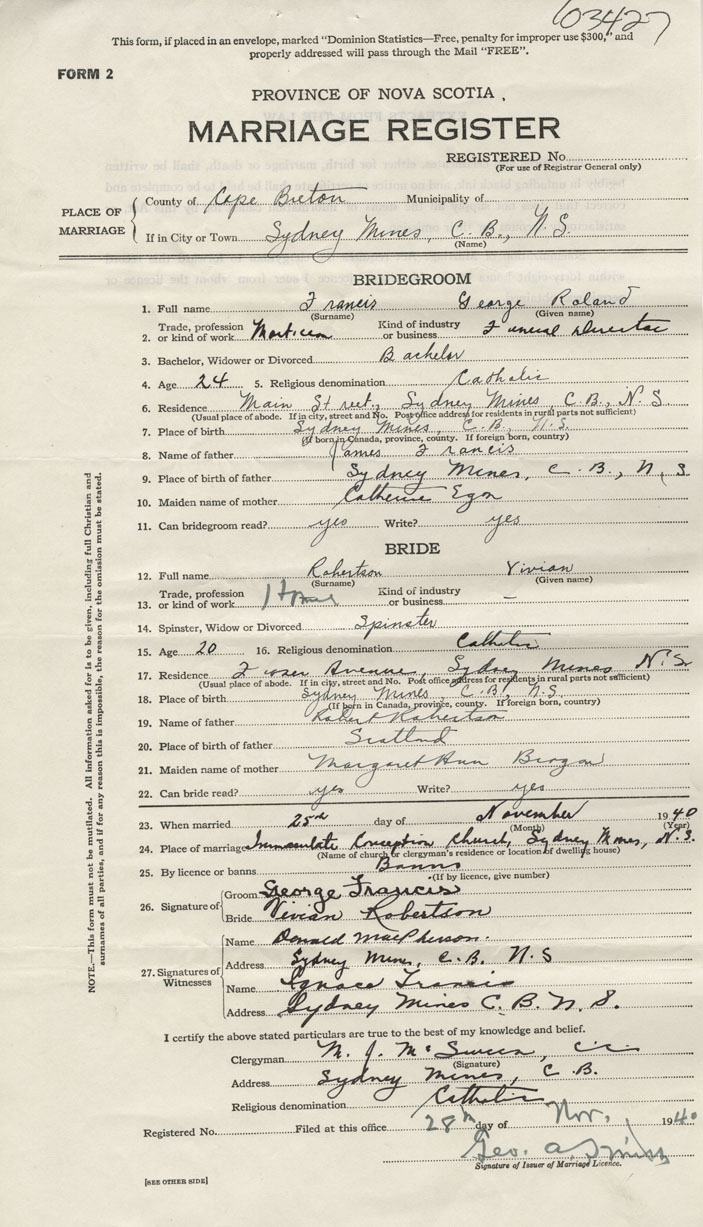 603427
This form, if placed in an envelope, marked "Dominion Statistics—Free, penalty for improper use $300," and
properly addressed will pass through the Mail "FREE".
FORM 2
PROVINCE OF NOVA SCOTIA
MARRIAGE REGISTER
REGISTERED No.
(For use of Registrar General only)
PLACE OF MARRIAGE
County of Cape Breton Municipality of
If in City or Town Sydney Mines, C. B., N. S.
(Name)
BRIDEGROOM
1. Full name Francis George Roland
(Surname) (Given name)
2. Trade, profession or kind of work Mortician Kind of industry or business Funeral Director
3. Bachelor, Widower or Divorced Bachelor
4. Age 24 5. Religious denomination Catholic
6. Residence Main Street, Sydney Mines, C. B., N. S.
(Usual place of abode. If in city, street and No. Post office address for residents in rural parts not sufficient)
7. Place of birth Sydney Mines, C. B., N. S.
(If born in Canada, province, county. If foreign born, country)
8. Name of father James Francis
9. Place of birth of father Sydney Mines, C. B., N. S.
10. Maiden name of mother Catherine Egan
11. Can bridegroom read? yes Write? yes
BRIDE
12. Full name Robertson Vivian
(Surname) (Given name)
13. Trade, profession or kind of work Home Kind of industry or business –
14. Spinster, Widow or Divorced Spinster
15. Age 20 16. Religious denomination Catholic
17. Residence Avenue, Sydney Mines N. S.
(Usual place of abode. If in city, street and No. Post office address for residents in rural parts not sufficient)
18. Place of birth Sydney Mines, C. B., N. S.
(If born in Canada, province, county. If foreign born, country)
19. Name of father Robert Robertson
20. Place of birth of father Scotland
21. Maiden name of mother Margaret Ann Brogan
22. Can bride read? yes Write? yes
23. When married 25 day of November 1940
(Month) (Year)
24. Place of marriage Immaculate Conception Church, Sydney Mines, N. S.
(Name of church or clergyman's residence or location of dwelling house)
25. By licence or banns Banns
(If by licence, give number)
26. Signature of
Groom George Francis
Bride Vivian Robertson
27. Signatures of Witnesses
Name Donald MacPherson.
Address Sydney Mines, C. B. N. S
Name Ignace Francis
Address Sydney Mines C. B. N. S.
I certify the above stated particulars are true to the best of my knowledge and belief.
Clergyman M. J. McSween, c.c.
(Signature)
Address Sydney Mines, C. B.
Religious denomination Catholic
Registered No. Filed at this office 28th day of Nov. 1940
Geo. A.
Signature of Issuer of Marriage Licence.
[SEE OTHER SIDE]
NOTE.—This form must not be mutilated. All information asked for is to be given, including full Christian and
surnames of all parties, and if for any reason this is impossible, the reason for the omission must be stated.